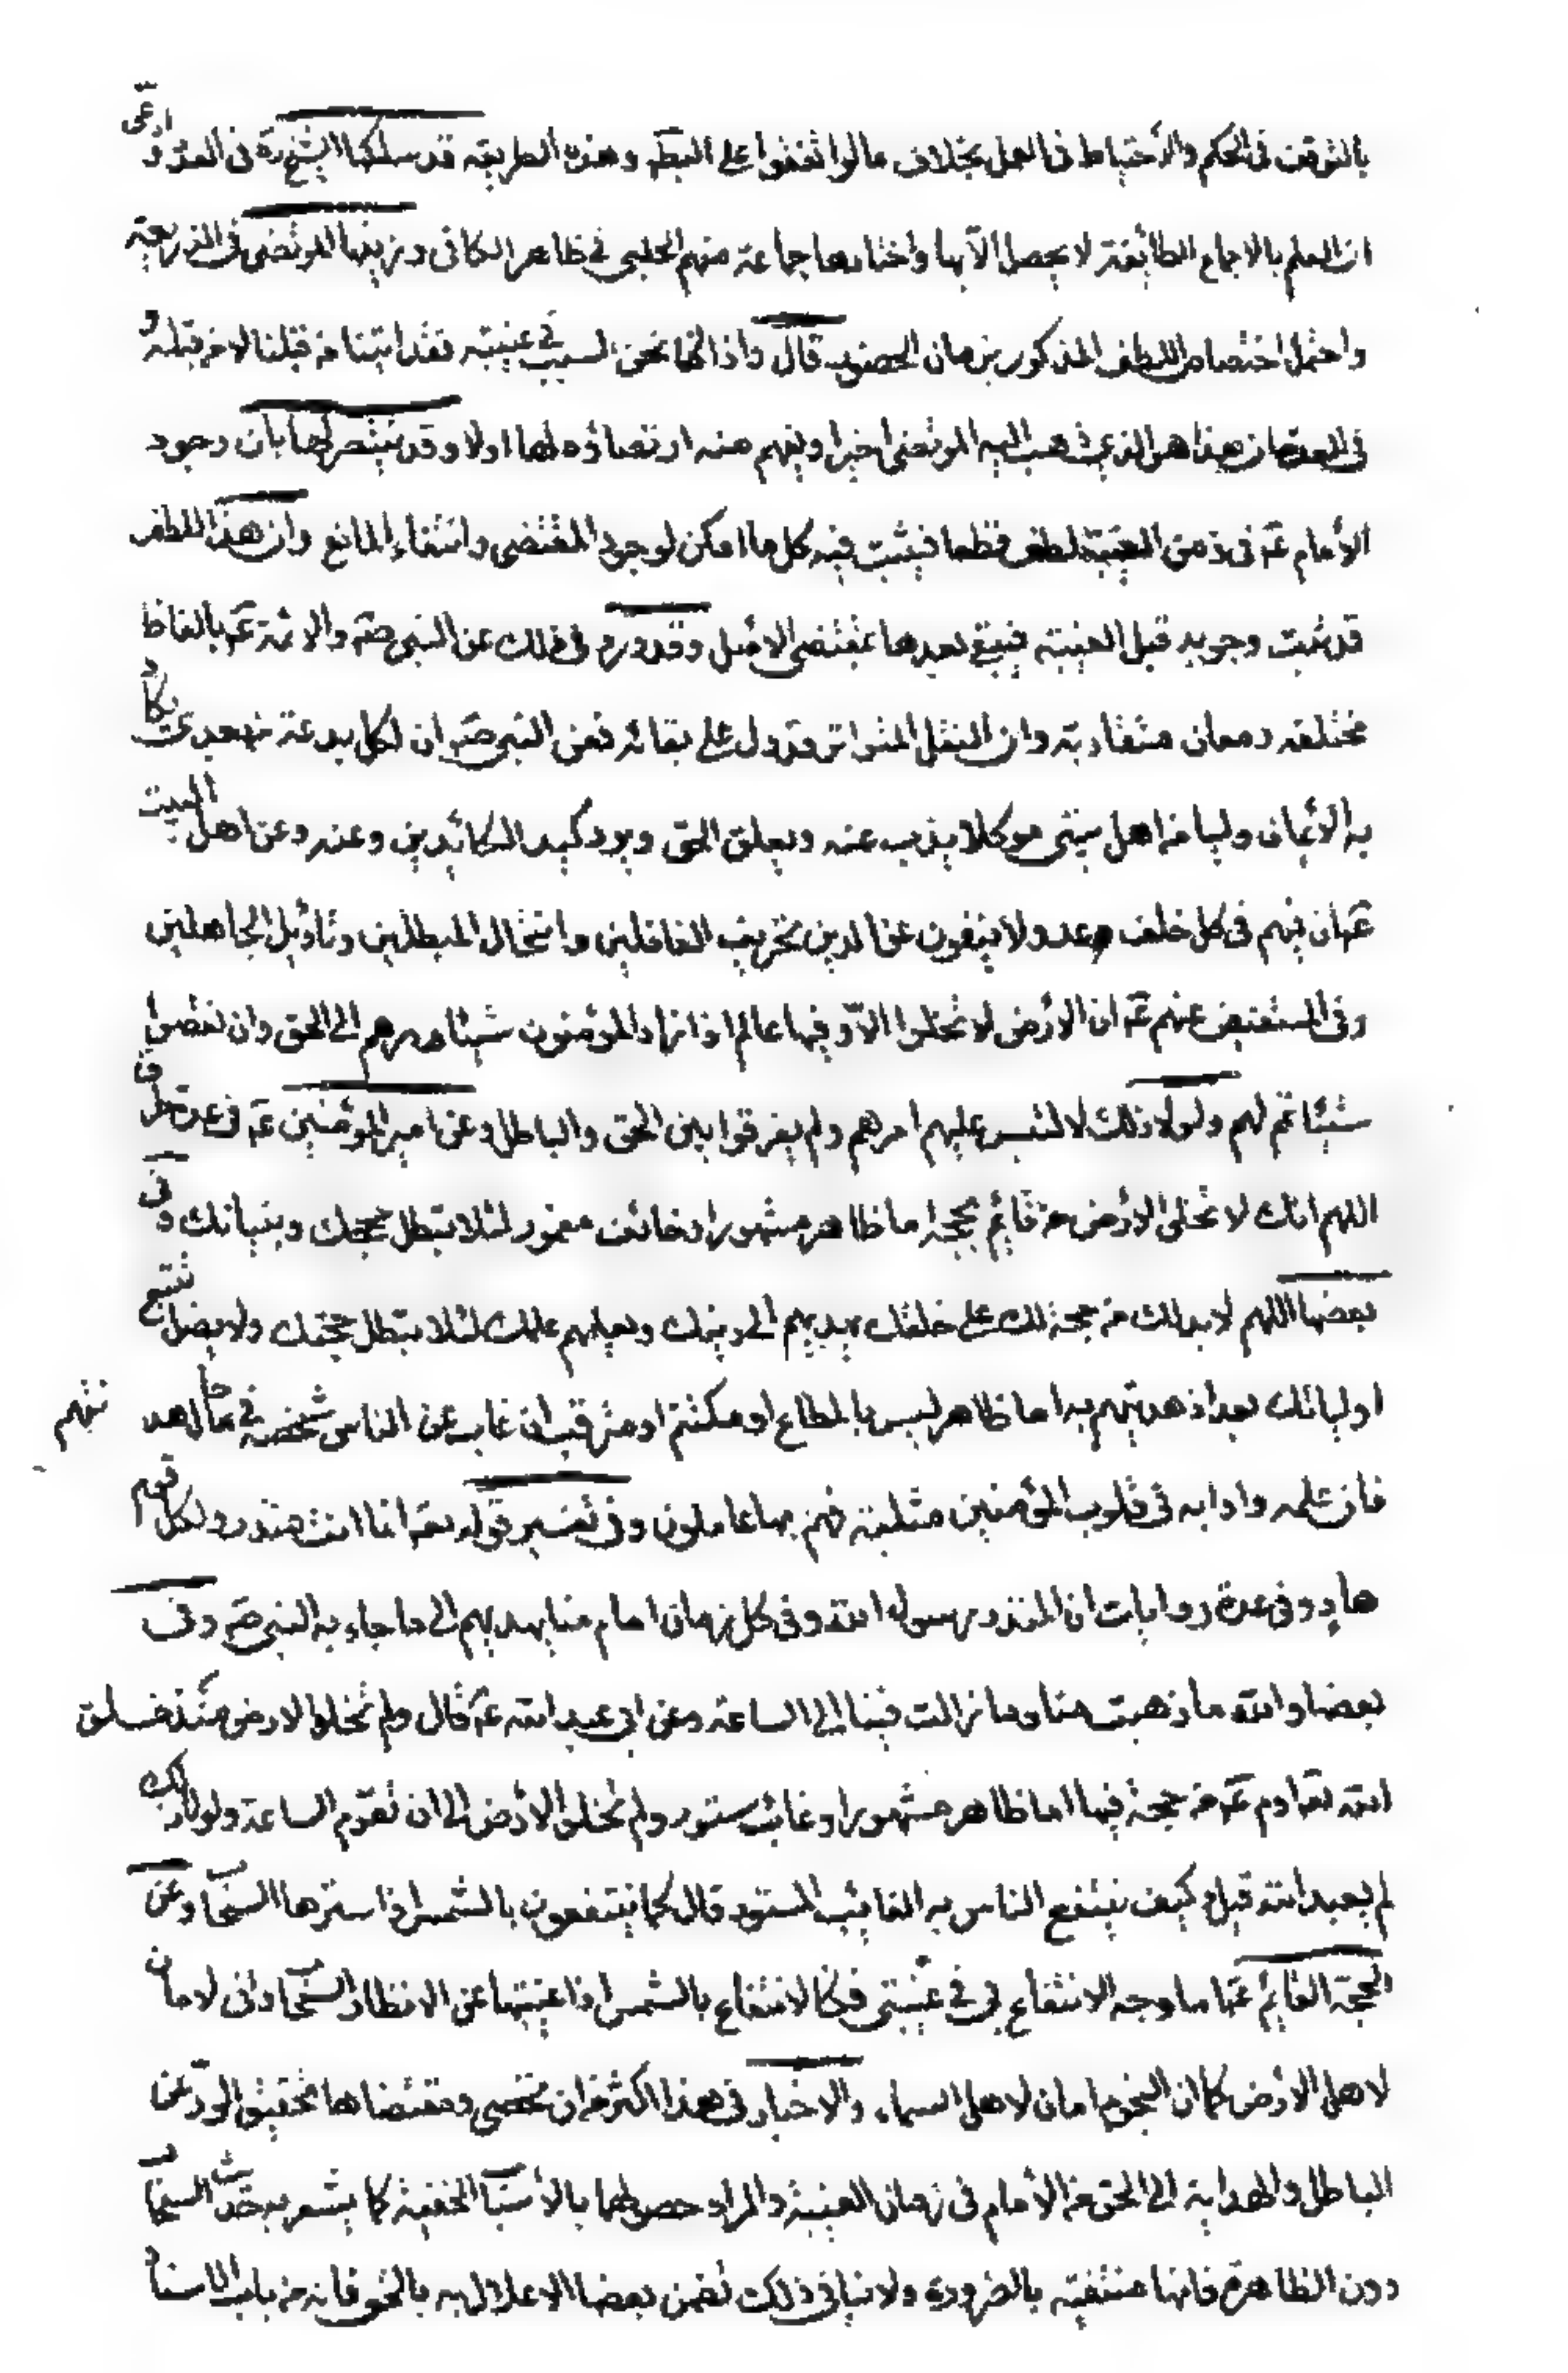 بالتوقف في الحكم والأحتياط في العمل بخلاف ما لو اتفقوا على الخطأ وهذه الطريقه قد سلكها الشيخ ره في العدة وادعى
ان العلم بالاجماع الطائفة لا يحصل الا بها واختارها جماعة منهم الحلبي في ظاهر الكافي وزيفها المرتضى في الذريعة
واحتمل اختصاص اللطف المذكور بزمان الحضور قال واذا كنا نحن السبب في غيبته فقد اتينا من قبلنا لا من قبله و
في العدة ان هذا هو الذي ذهب اليه المرتضى اخيرا ويفهم منه ارتضاؤه لها اولا وقد ينتصر لها بان وجود
الأمام عم في زمن الغيبة لطف قطعا فيثبت فيه كل ما امكن لوجود المقتضى وانتفاء المانع وان هذا اللطف
قد ثبت وجوبه قبل الغيبة فيبقى بعدها بمقتضى الاصل وقد ورد في ذلك عن النبي صم والائمة عم بالفاظ
مختلفه ومعان متقاربة وان النقل المتواتر قد دل على بقائه فعن النبي صم ان لكل بدعة من بعدي يكاد
به الأيمان وليا من اهل بيتي موكلا يذب عنه ويعلن الحق ويرد كيد الكائدين وعنه وعن اهل البيت
عم ان فيهم في كل خلف عدولا ينفون عن الدين تحريف الغافلين وانتحال المبطلين وتأويل الجاهلين
وفي المستفيض عنهم عم ان الأرض لا تخلوا الا وفيها عالم اذا زاد المؤمنون شيئا ردهم الى الحق وان نقصوا
شيئا تم لهم ولولا ذلك لالتبس عليهم امرهم ولم يفرقوا بين الحق والباطل وعن امير المؤمنين عم في عدة طرق
اللهم انك لا تخلى الأرض من قائم بحجة اما ظاهر مشهور او خائف مغمور لئلا تبطل حججك وبيناتك وفي
بعضها اللهم لا بد لك من حجة لك على خلقك يهديهم الى دينك ويعلمهم علمك لئلا تبطل حجتك ولا يضل تتبع
اوليائك بعد اذ هديتهم به اما ظاهر ليس بالمطاع او مكتتم او مترقب ان غاب عن الناس شخصه في حال هدنتهم
فان علمه وادابه في قلوب المؤمنين مثبتة فهم بها عاملون وفي تفسير قوله تعم انما انت منذر ولكل قوم
هاد وفي عدة روايات ان المنذر رسول الله وفي كل زمان امام منا يهديهم الى ما جاء به النبي صم وفي
بعضها والله ما ذهبت منا وما زالت فينا الى الساعة وعن ابي عبد الله عم قال ولم تخلوا الارض منذ خلق
الله تعم ادم عم من حجة فيها اما ظاهر مشهور او غائب مستور ولم تخلو الأرض الى ان تقوم الساعة ولولا ذلك
لم يعبد الله قيل كيف ينتفع الناس به الغائب المستور قال كما ينتفعون بالشمس اذا سترها السحاب وعن
الحجة القائم عم اما وجه الانتفاع بي في غيبتي فكالانتفاع بالشمس اذا غيبتها عن الانظار السحاب واني لامان
لاهل الأرض كما ان النجوم امان لاهل السماء والاخبار في هذا اكثر من ان تحصى ومقتضاها تحقيق الردع عن
الباطل والهداية الى الحق من الأمام في زمان الغيبة والمراد حصولها بالأسباب الخفية كما يشعر به حديث السحاب
دون الظاهرة فانها منتفية بالضرورة ولا ينافي ذلك تضمن بعضها الاعلال به بالنحو فانه من باب الاسناد